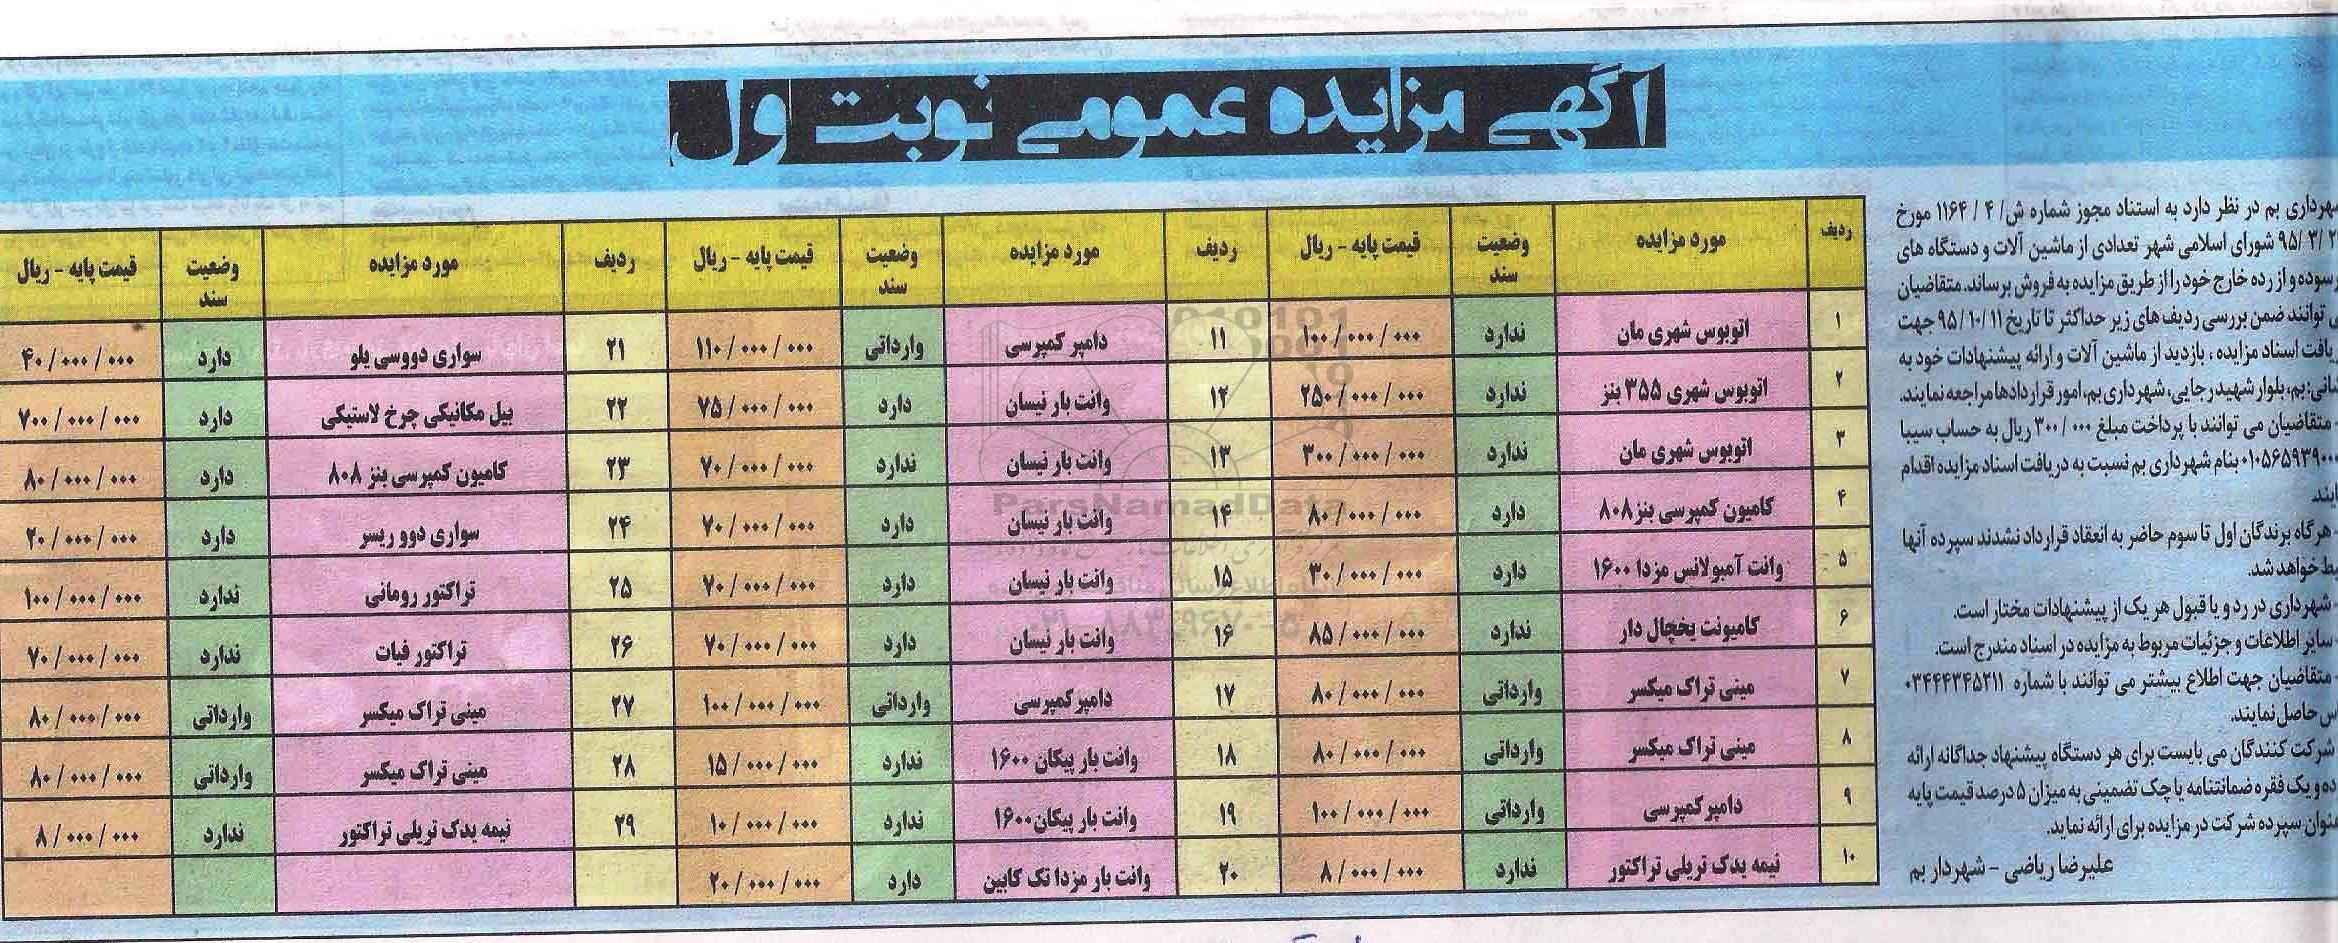 آگهی مزایده عمومی نوبت اول
شهرداری بم در نظر دارد به استناد مجوز شماره ش/ ۴ / ۱۱۶۴ مورخ
۹۵/۳/۲ شورای اسلامی شهر تعدادی از ماشین آلات و دستگاه های
فرسوده و از رده خارج خود را از طریق مزایده به فروش برساند. متقاضیان
می توانند ضمن بررسی ردیف های زیر حداکثر تا تاریخ ۹۵/۱۰/۱۱ جهت
دریافت اسناد مزایده ، بازدید از ماشین آلات و ارائه پیشنهادات خود به
نشانی: بم، بلوار شهید رجایی، شهرداری بم، امور قراردادها مراجعه نمایند.
- متقاضیان می توانند با پرداخت مبلغ ۳۰۰/۰۰۰ ریال به حساب سیبا
بنام شهرداری بم نسبت به دریافت اسناد مزایده اقدام
نمایند.
- هرگاه برندگان اول تا سوم حاضر به انعقاد قرارداد نشدند سپرده آنها
ضبط خواهد شد.
- شهرداری در رد و یا قبول هر یک از پیشنهادات مختار است.
- سایر اطلاعات و جزئیات مربوط به مزایده در اسناد مندرج است.
- متقاضیان جهت اطلاع بیشتر می توانند با شماره ۰۳۴۴۴۳۴۵۲۱۱
تماس حاصل نمایند.
شرکت کنندگان می بایست برای هر دستگاه پیشنهاد جداگانه ارائه
داده و یک فقره ضمانتنامه یا چک تضمینی به میزان ۵ درصد قیمت پایه
بعنوان سپرده شرکت در مزایده برای ارائه نماید.
علیرضا ریاضی - شهردار بم
ردیف مورد مزایده وضعیت سند قیمت پایه - ریال
۱ اتوبوس شهری مان ندارد ۱۰۰/۰۰۰/۰۰۰
۲ اتوبوس شهری ۳۵۵ بنز ندارد ۲۵۰/۰۰۰/۰۰۰
۳ اتوبوس شهری مان ندارد ۳۰۰/۰۰۰/۰۰۰
۴ کامیون کمپرسی بنز ۸۰۸ دارد ۸۰/۰۰۰/۰۰۰
۵ وانت آمبولانس مزدا ۱۶۰۰ دارد ۳۰/۰۰۰/۰۰۰
۶ کامیونت یخچال دار ندارد ۸۵/۰۰۰/۰۰۰
۷ مینی تراک میکسر وارداتی ۸۰/۰۰۰/۰۰۰
۸ مینی تراک میکسر وارداتی ۸۰/۰۰۰/۰۰۰
۹ دامپر کمپرسی وارداتی ۱۰۰/۰۰۰/۰۰۰
۱۰ نیمه یدک تریلی تراکتور ندارد ۸/۰۰۰/۰۰۰
ردیف مورد مزایده وضعیت سند قیمت پایه - ریال
۱۱ دامپر کمپرسی وارداتی ۱۱۰/۰۰۰/۰۰۰
۱۲ وانت بار نیسان دارد ۷۵/۰۰۰/۰۰۰
۱۳ وانت بار نیسان ندارد ۷۰/۰۰۰/۰۰۰
۱۴ وانت بار نیسان دارد ۷۰/۰۰۰/۰۰۰
۱۵ وانت بار نیسان دارد ۷۰/۰۰۰/۰۰۰
۱۶ وانت بار نیسان دارد ۷۰/۰۰۰/۰۰۰
۱۷ دامپر کمپرسی وارداتی ۱۰۰/۰۰۰/۰۰۰
۱۸ وانت بار پیکان ۱۶۰۰ ندارد ۱۵/۰۰۰/۰۰۰
۱۹ وانت بار پیکان ۱۶۰۰ ندارد ۱۰/۰۰۰/۰۰۰
۲۰ وانت بار مزدا تک کابین دارد ۲۰/۰۰۰/۰۰۰
ردیف مورد مزایده وضعیت سند قیمت پایه - ریال
۲۱ سواری دووسی یلو دارد ۴۰/۰۰۰/۰۰۰
۲۲ بیل مکانیکی چرخ لاستیکی دارد ۷۰۰/۰۰۰/۰۰۰
۲۳ کامیون کمپرسی بنز ۸۰۸ دارد ۸۰/۰۰۰/۰۰۰
۲۴ سواری دوو ریسر دارد ۲۰/۰۰۰/۰۰۰
۲۵ تراکتور رومانی ندارد ۱۰۰/۰۰۰/۰۰۰
۲۶ تراکتور فیات ندارد ۷۰/۰۰۰/۰۰۰
۲۷ مینی تراک میکسر وارداتی ۸۰/۰۰۰/۰۰۰
۲۸ مینی تراک میکسر وارداتی ۸۰/۰۰۰/۰۰۰
۲۹ نیمه یدک تریلی تراکتور ندارد ۸/۰۰۰/۰۰۰
ParsNamadData